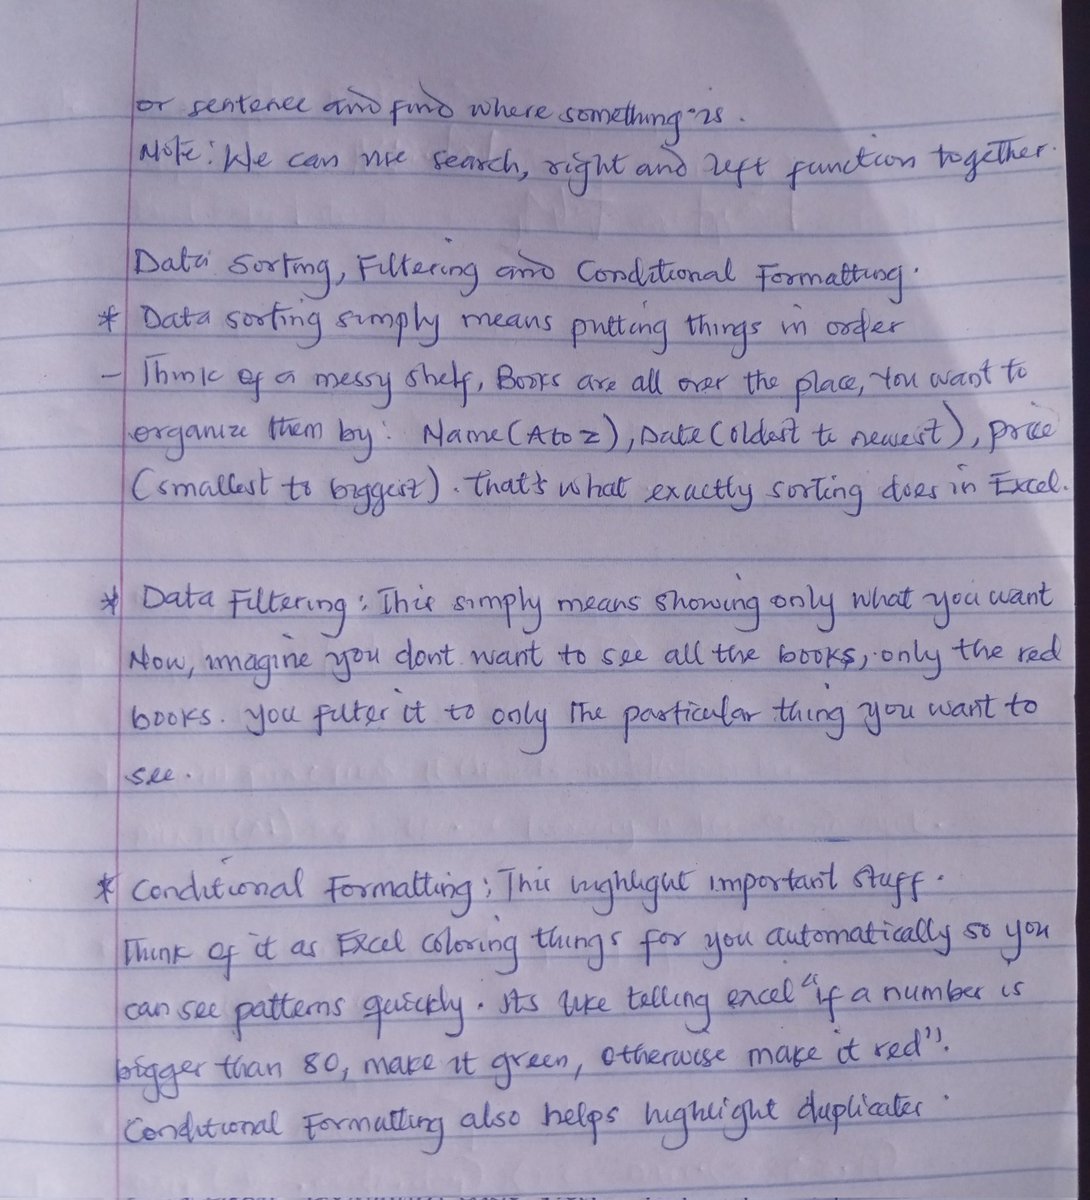 or sentence and find where something is.
Note: We can use search, right and left function together.
Data Sorting, Filtering and Conditional Formatting.
* Data sorting simply means putting things in order
- Think of a messy shelf, Books are all over the place, You want to
organize them by: Name (A to Z), Date (oldest to newest), price
(smallest to biggest). That's what exactly sorting does in Excel.
* Data Filtering: This simply means showing only what you want
Now, imagine you dont want to see all the books, only the red
books. You filter it to only the particular thing you want to
see.
* Conditional Formatting: This highlight important stuff.
Think of it as Excel coloring things for you automatically so you
can see patterns quickly. Its like telling excel "if a number is
bigger than 80, make it green, otherwise make it red".
Conditional Formatting also helps highlight duplicates.